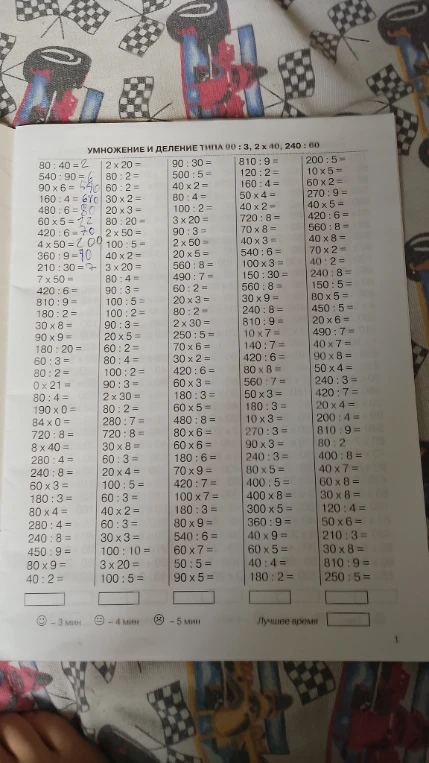 УМНОЖЕНИЕ И ДЕЛЕНИЕ ТИПА 90 : 3, 2 х 40, 240 : 60
80 : 40 = 2
540 : 90 = 6
90 х 6 =
160 : 4 =
480 : 6 = 80
60 х 5 =
420 : 6 = 70
4 х 50 = 200
360 : 9 =
210 : 30 = 7
7 х 50 =
420 : 6 =
810 : 9 =
180 : 2 =
30 х 8 =
90 х 9 =
180 : 20 =
60 : 3 =
80 : 2 =
0 х 21 =
80 : 4 =
190 х 0 =
84 х 0 =
720 : 8 =
8 х 40 =
280 : 4 =
240 : 8 =
60 х 3 =
180 : 3 =
80 х 4 =
280 : 4 =
240 : 8 =
450 : 9 =
80 х 9 =
40 : 2 =
2 х 20 =
80 : 2 =
60 : 2 =
30 х 2 =
20 х 3 =
80 : 20 =
2 х 50 =
100 : 5 =
40 х 2 =
3 х 20 =
80 : 4 =
90 : 3 =
100 : 5 =
100 : 2 =
90 : 3 =
20 х 5 =
60 : 2 =
80 : 4 =
100 : 2 =
90 : 3 =
2 х 30 =
80 : 2 =
280 : 7 =
720 : 8 =
30 х 8 =
60 : 3 =
20 х 4 =
100 : 5 =
60 : 3 =
40 х 2 =
60 : 3 =
30 х 3 =
100 : 10 =
3 х 20 =
100 : 5 =
90 : 30 =
500 : 5 =
40 х 2 =
80 : 4 =
100 : 2 =
3 х 20 =
90 : 3 =
2 х 50 =
20 х 5 =
560 : 8 =
490 : 7 =
60 : 2 =
20 х 3 =
80 : 2 =
2 х 30 =
250 : 5 =
70 х 6 =
30 х 2 =
420 : 6 =
60 х 3 =
180 : 3 =
60 х 5 =
480 : 8 =
80 х 6 =
60 х 6 =
180 : 6 =
70 х 9 =
420 : 7 =
100 х 7 =
180 : 3 =
80 х 9 =
540 : 6 =
60 х 7 =
50 : 5 =
90 х 5 =
810 : 9 =
120 : 2 =
160 : 4 =
50 х 4 =
40 х 2 =
720 : 8 =
70 х 8 =
40 х 3 =
540 : 6 =
100 х 3 =
150 : 30 =
560 : 8 =
30 х 9 =
240 : 8 =
810 : 9 =
10 х 7 =
140 : 7 =
420 : 6 =
80 х 8 =
560 : 7 =
50 х 3 =
180 : 3 =
10 х 3 =
270 : 3 =
90 х 3 =
240 : 3 =
80 х 5 =
400 : 5 =
400 х 8 =
300 х 5 =
360 : 9 =
40 х 9 =
60 х 5 =
40 : 4 =
180 : 2 =
200 : 5 =
10 х 5 =
60 х 2 =
270 : 9 =
40 х 5 =
420 : 6 =
560 : 8 =
40 х 8 =
70 х 2 =
40 : 2 =
240 : 8 =
150 : 5 =
80 х 5 =
450 : 5 =
20 х 6 =
490 : 7 =
40 х 7 =
90 х 8 =
50 х 4 =
240 : 3 =
420 : 7 =
20 х 4 =
200 : 4 =
810 : 9 =
80 : 2
400 : 8 =
40 х 7 =
60 х 8 =
30 х 8 =
120 : 4 =
50 х 6 =
210 : 3 =
30 х 8 =
810 : 9 =
250 : 5 =
– 3 мин – 4 мин – 5 мин Лучшее время
1